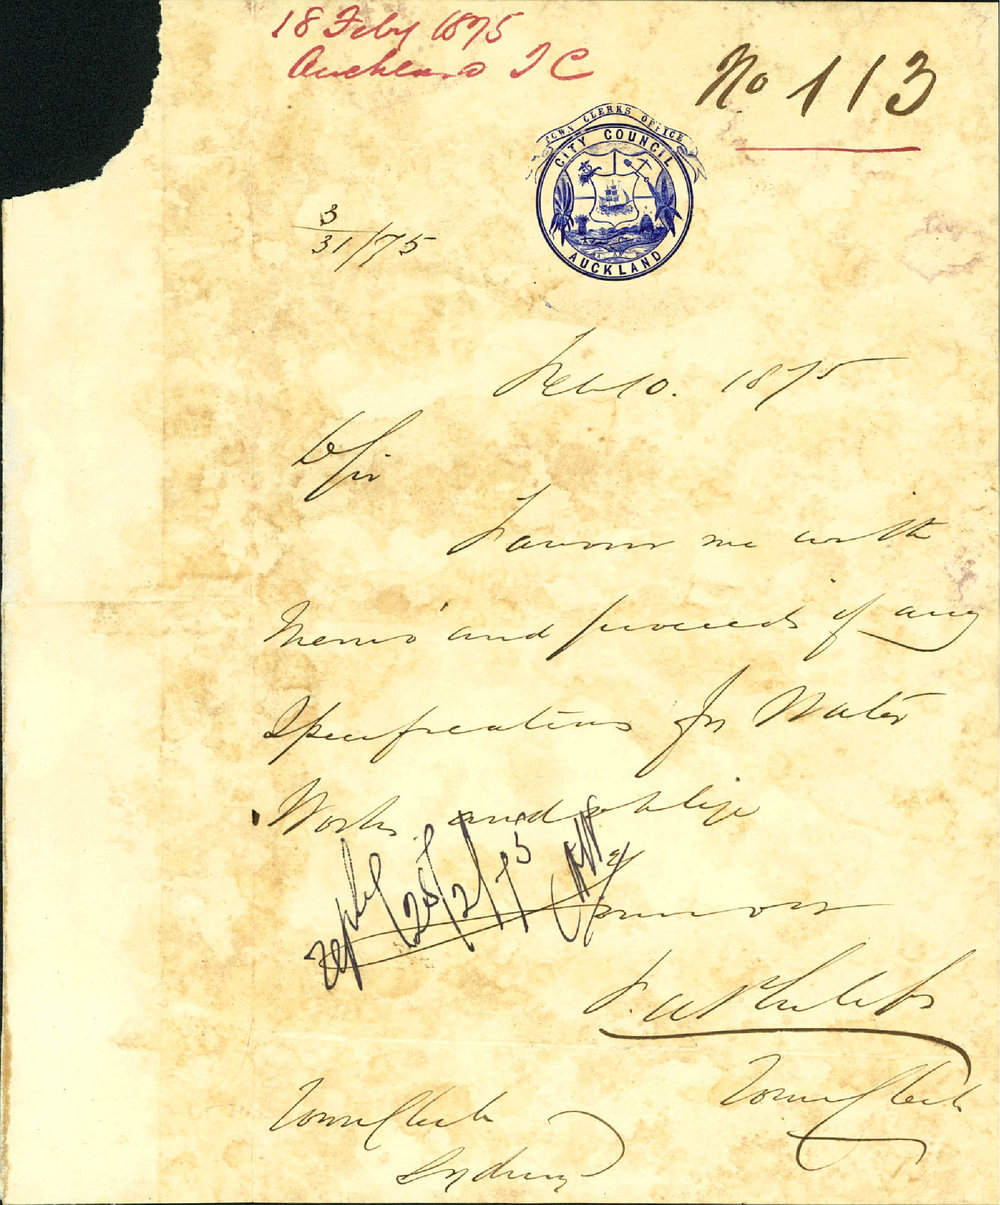 18 Feby 1875
Auckland T C
No 113
TOWN CLERKS OFFICE
CITY COUNCIL
AUCKLAND
3
31/75
Feb 10. 1875
D Sir
Favour me with
Memo and proceeds of any
Specifications for Water
Works and oblige
Yours
P. A. Philips
Town Clerk
Reply 26/2/75
Town Clerk
Sydney